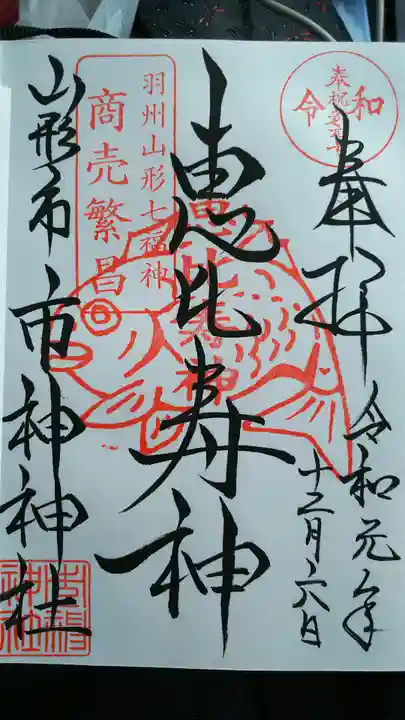 奉拝
令和元年
十二月六日
奉祝
令和
恵比寿神
羽州山形七福神
商売繁昌
⑥
恵比寿神
山形市市神神社
市神
神社